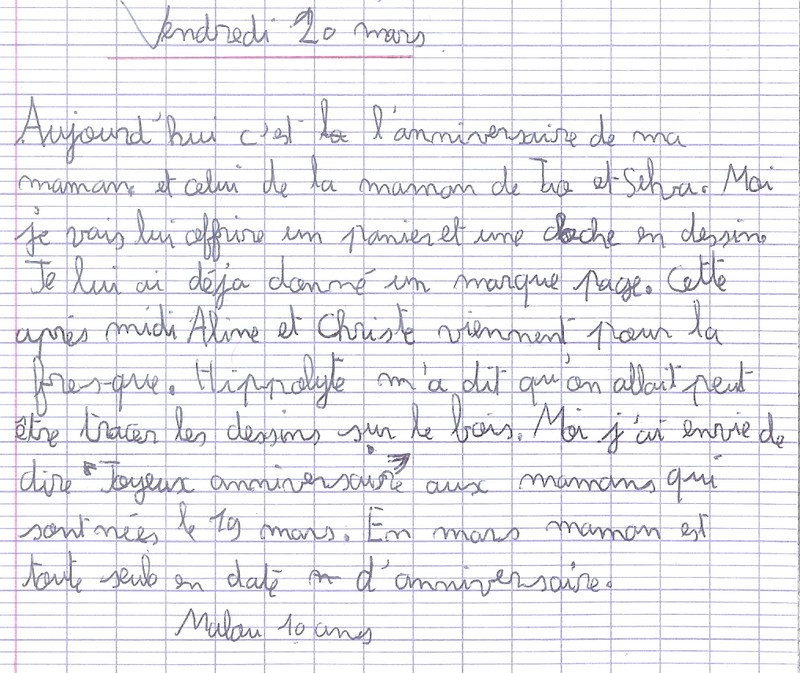 Vendredi 20 mars
Aujourd'hui c'est la l'anniversaire de ma
maman. et celui de la maman de et Selva. Moi
je vais lui offrire un panier et une cloche en dessin.
Je lui ai déja donné un marque page. Cette
après midi Aline et Christe viennent pour la
fres-que. Hippolyte m'a dit qu'on allait peut
être tracer les dessins sur le bois. Moi j'ai envie de
dire "Joyeux anniversaire" aux mamans qui
sont nées le 19 mars. En mars maman est
toute seule en date d'anniversaire.
Malou 10 ans